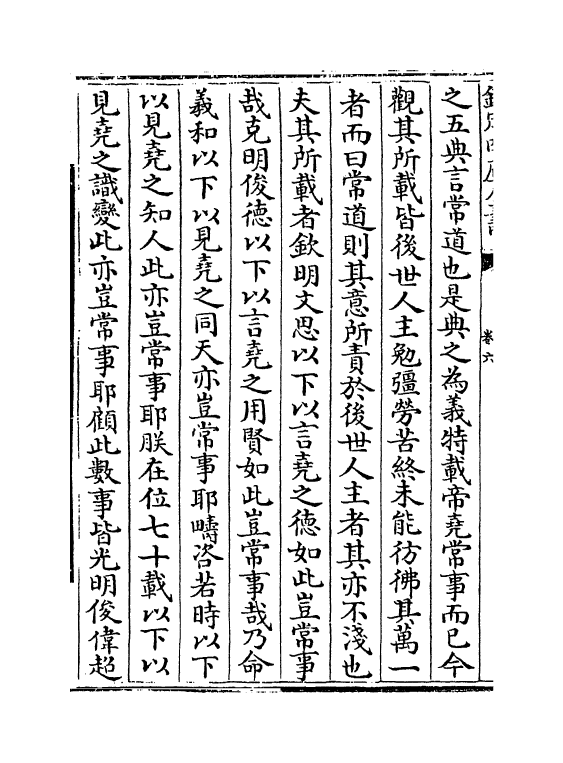 欽定四庫全書
卷六
之五典言常道也是典之為義特載帝堯常事而已今
觀其所載皆後世人主勉彊勞苦終未能彷彿其萬一
者而曰常道則其意所責於後世人主者其亦不淺也
夫其所載者欽明文思以下以言堯之德如此豈常事
哉克明俊德以下以言堯之用賢如此豈常事哉乃命
羲和以下以見堯之同天亦豈常事耶疇咨若時以下
以見堯之知人此亦豈常事耶朕在位七十載以下以
見堯之識變此亦豈常事耶顧此數事皆光明俊偉超